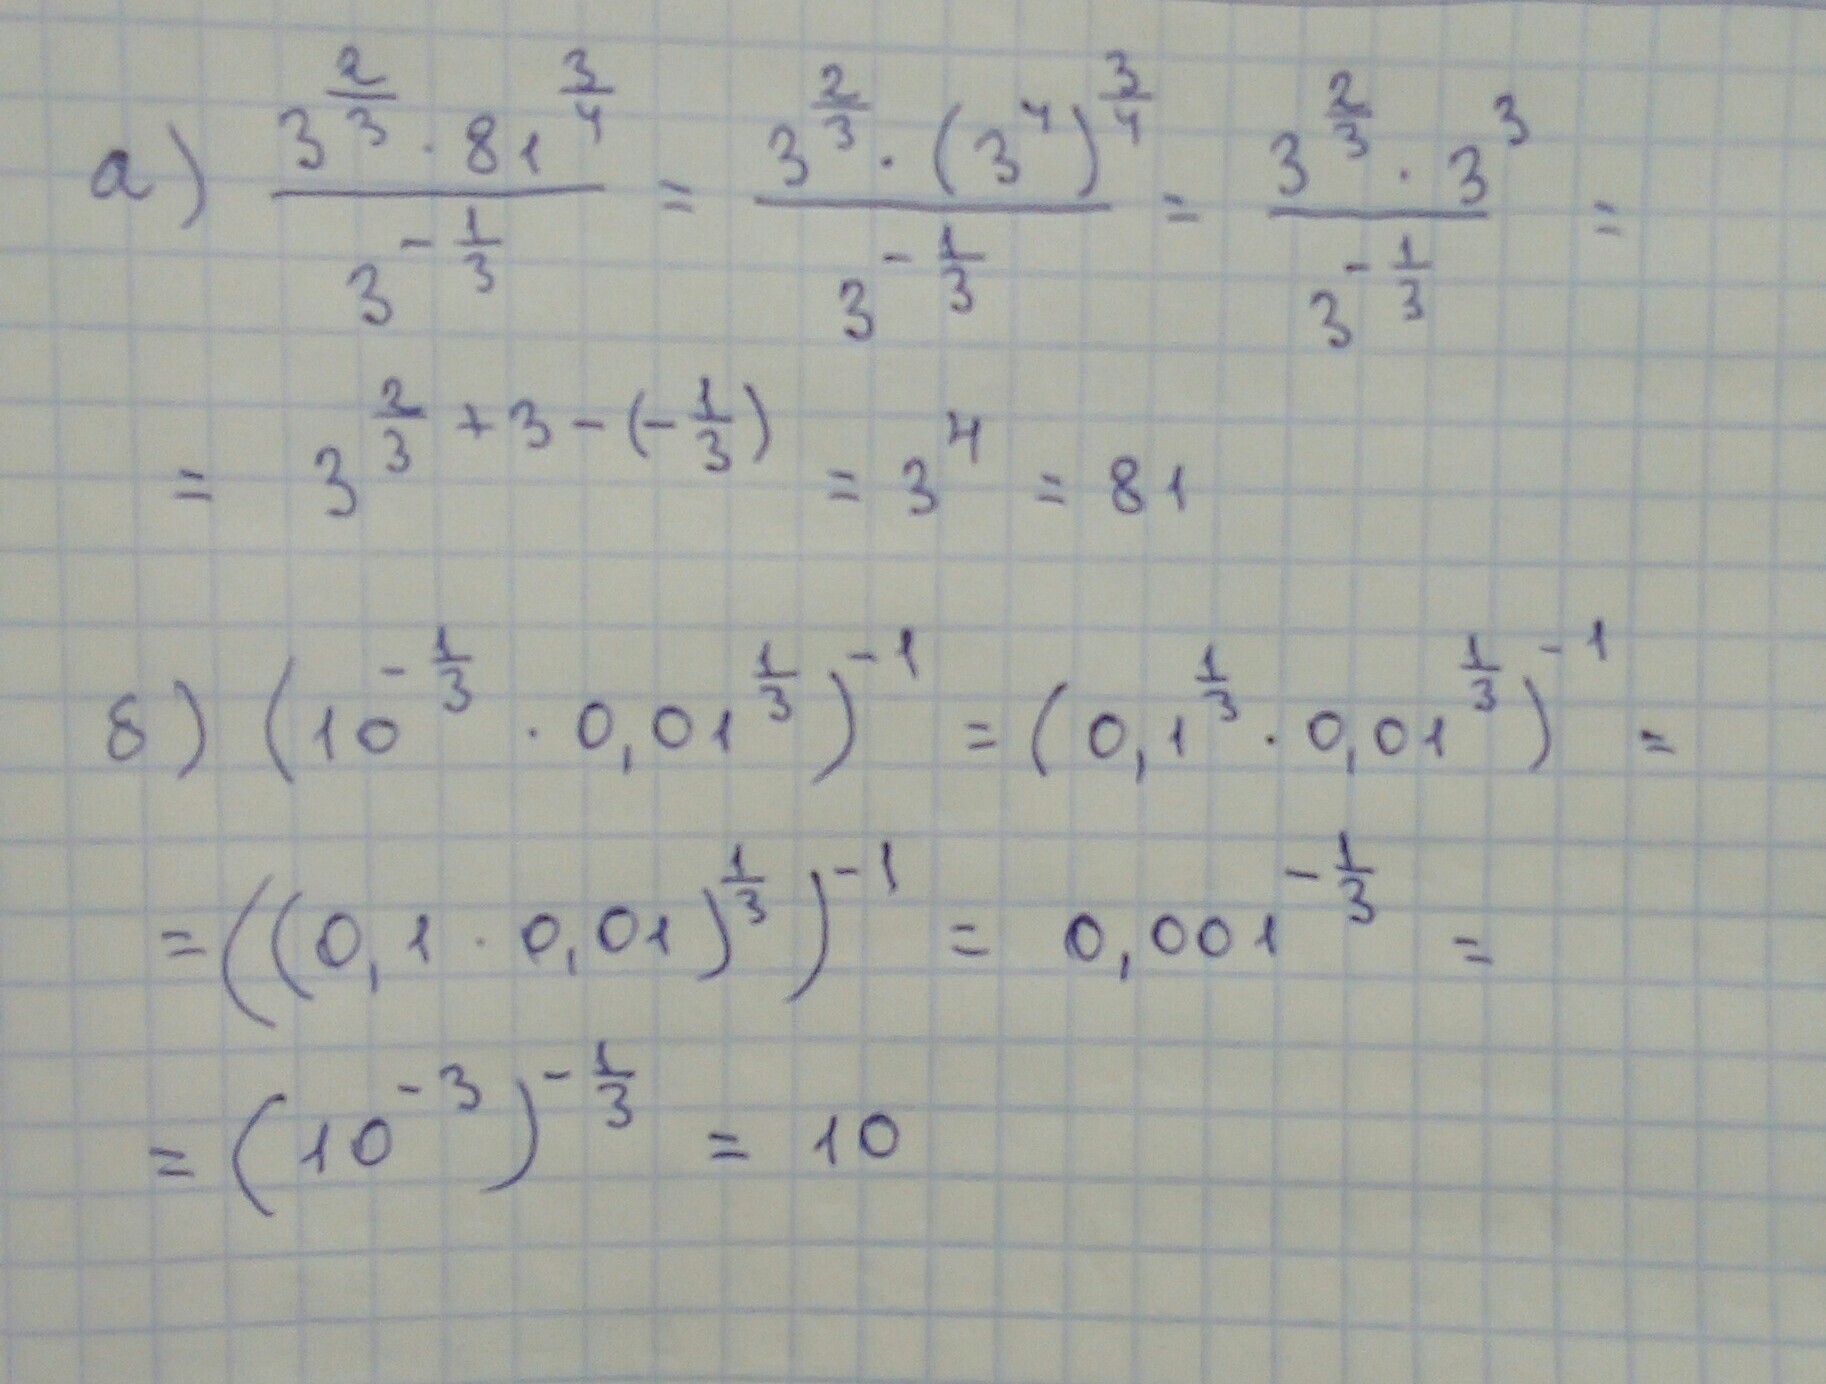 а) \frac{3^{\frac{2}{3}} \cdot 81^{\frac{3}{4}}}{3^{-\frac{1}{3}}} = \frac{3^{\frac{2}{3}} \cdot (3^4)^{\frac{3}{4}}}{3^{-\frac{1}{3}}} = \frac{3^{\frac{2}{3}} \cdot 3^3}{3^{-\frac{1}{3}}} =
= 3^{\frac{2}{3} + 3 - (-\frac{1}{3})} = 3^4 = 81
б) (10^{-\frac{1}{3}} \cdot 0,01^{\frac{1}{3}})^{-1} = (0,1^{\frac{1}{3}} \cdot 0,01^{\frac{1}{3}})^{-1} =
= ((0,1 \cdot 0,01)^{\frac{1}{3}})^{-1} = 0,001^{-\frac{1}{3}} =
= (10^{-3})^{-\frac{1}{3}} = 10